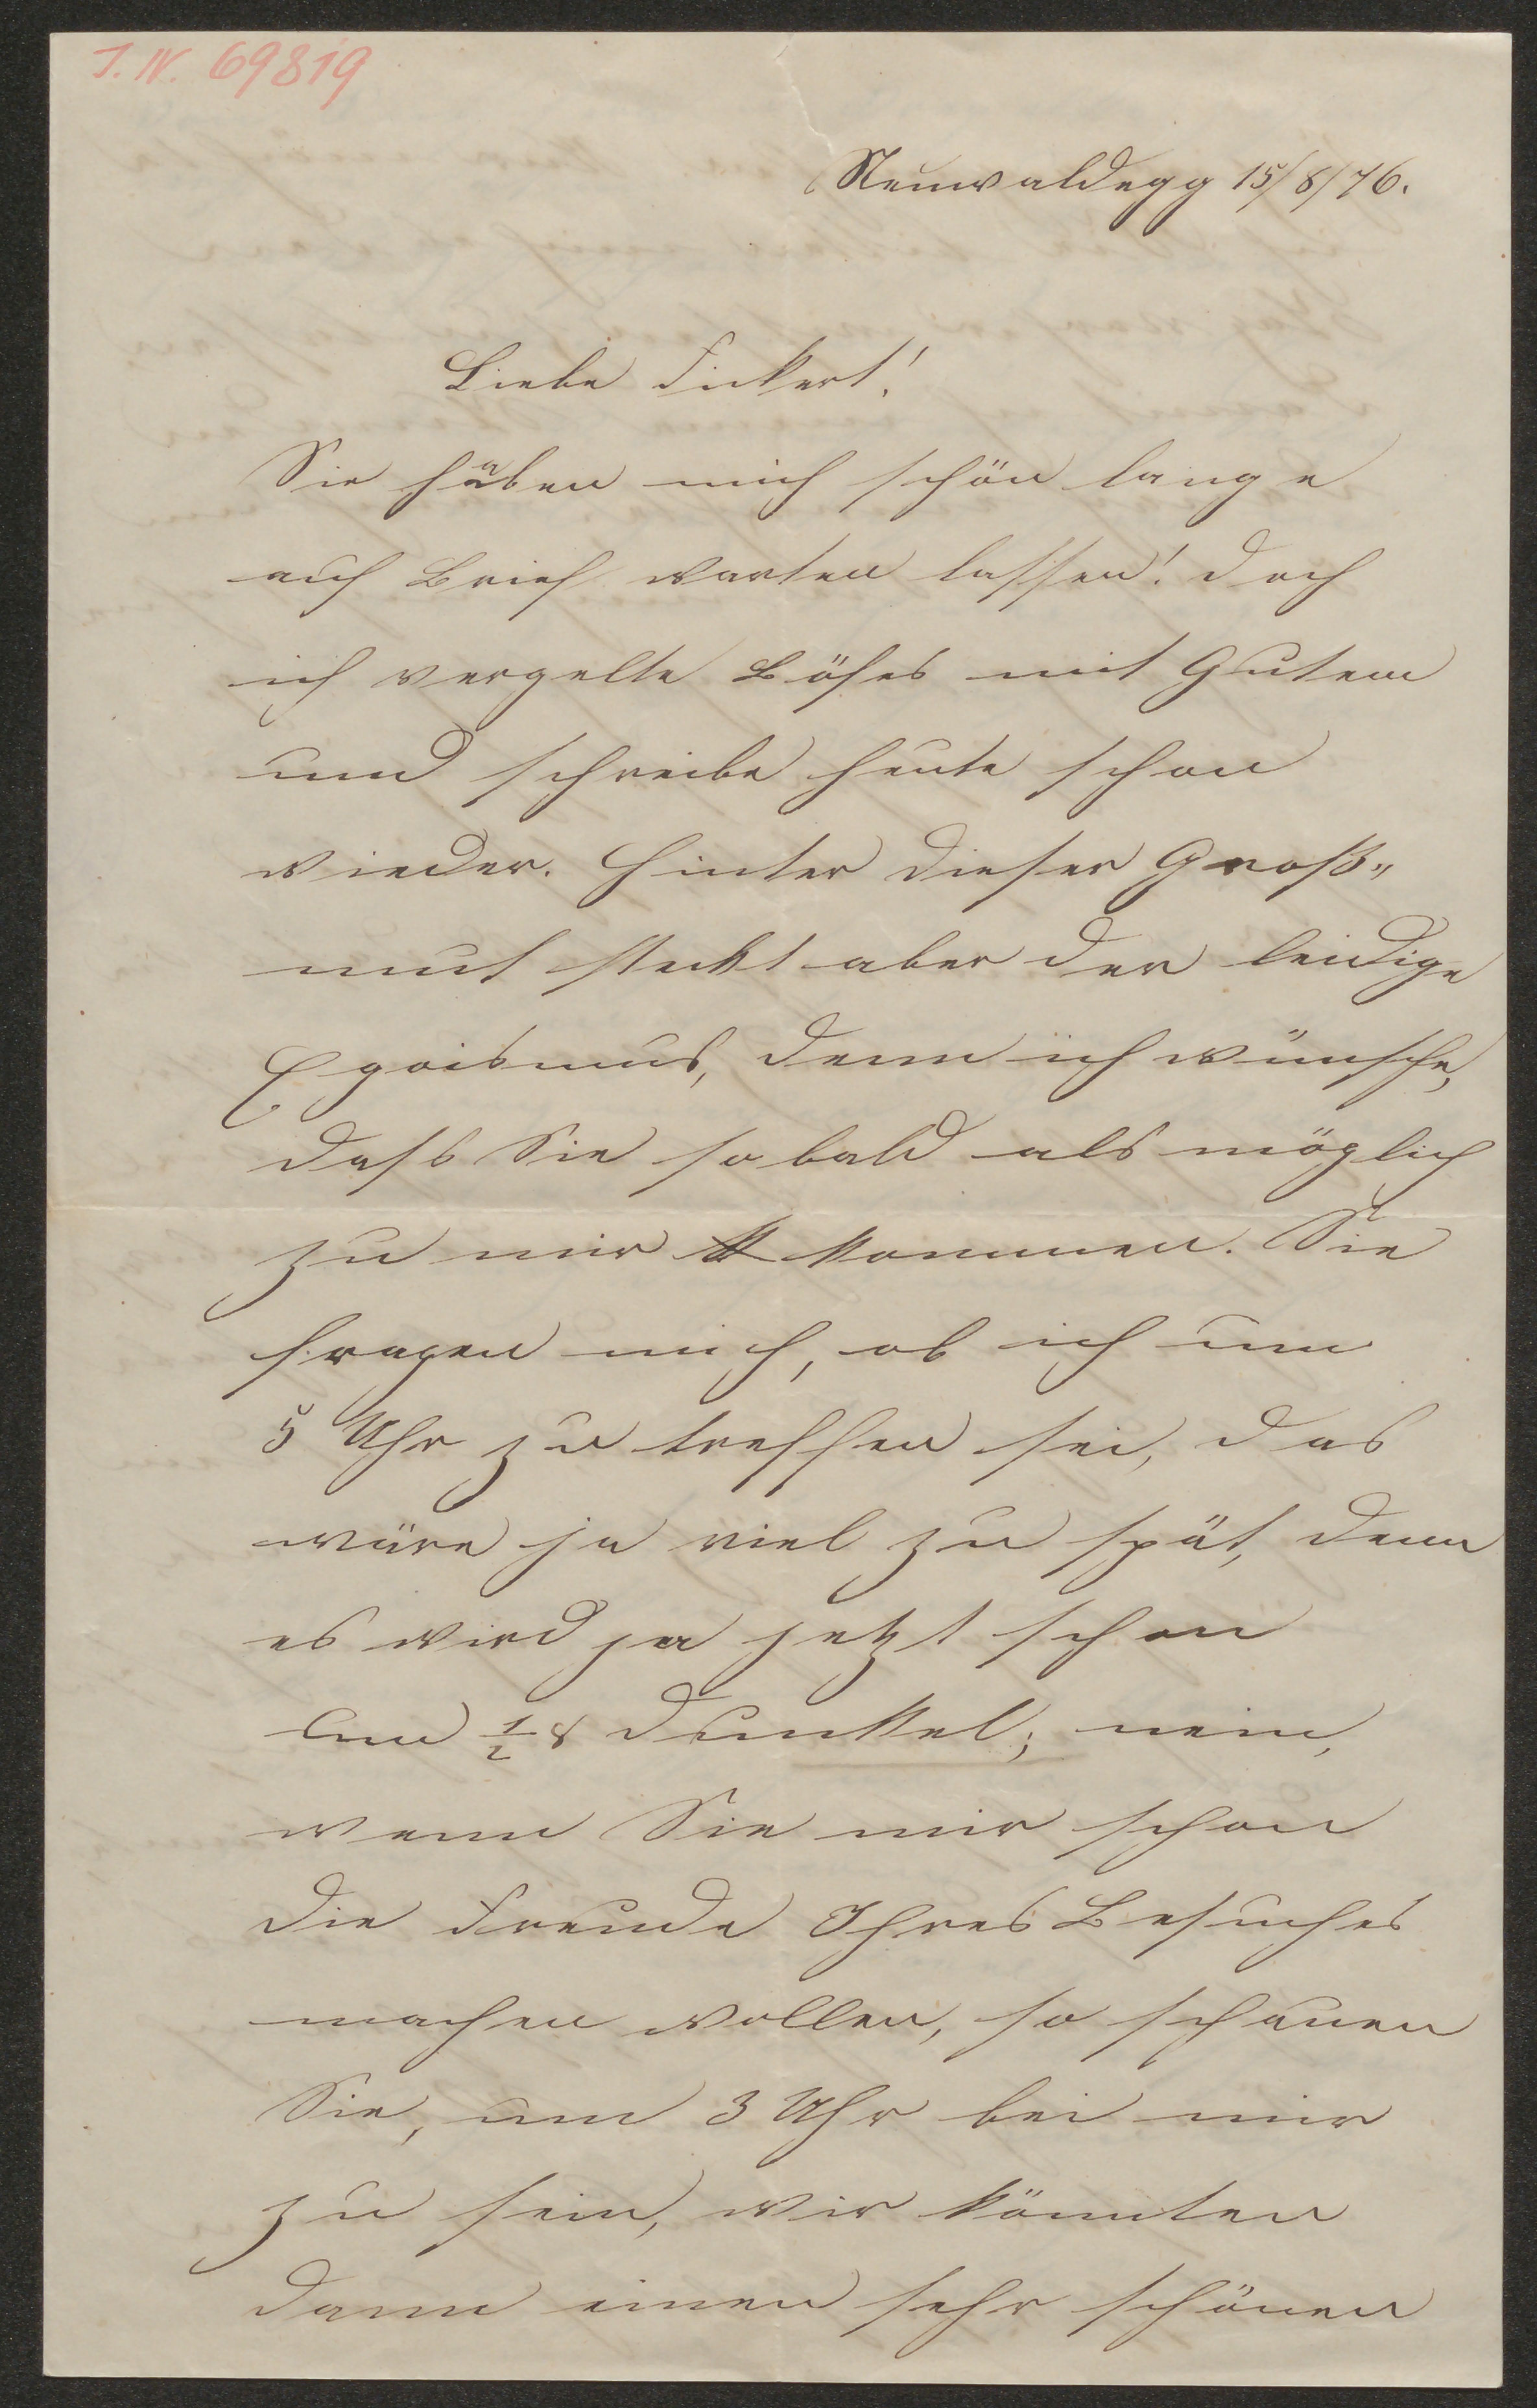 I.N. 69819
Neuwaldegg 15/8/76.
Liebe Fickert!
Sie haben mich schön lange
auf Brief warten lassen! Doch
ich vergelte Böses mit Gutem
und schreibe heute schon
wieder. Hinter dieser Groß„
mut steckt aber der leidige
Egoismus, denn ich wünsche,
dass Sie so bald als möglich
zu mir kommen. Sie
fragen mich, ob ich um
5 Uhr zu treffen sei, das
wäre ja viel zu spät, denn
es wird ja jetzt schon
um ½ 8 dunkel; nein,
wenn Sie mir schon
die Freude Ihres Besuches
machen wollen, so schauen
Sie, um 3 Uhr bei mir
zu sein, wir könnten
dann einen sehr schönen